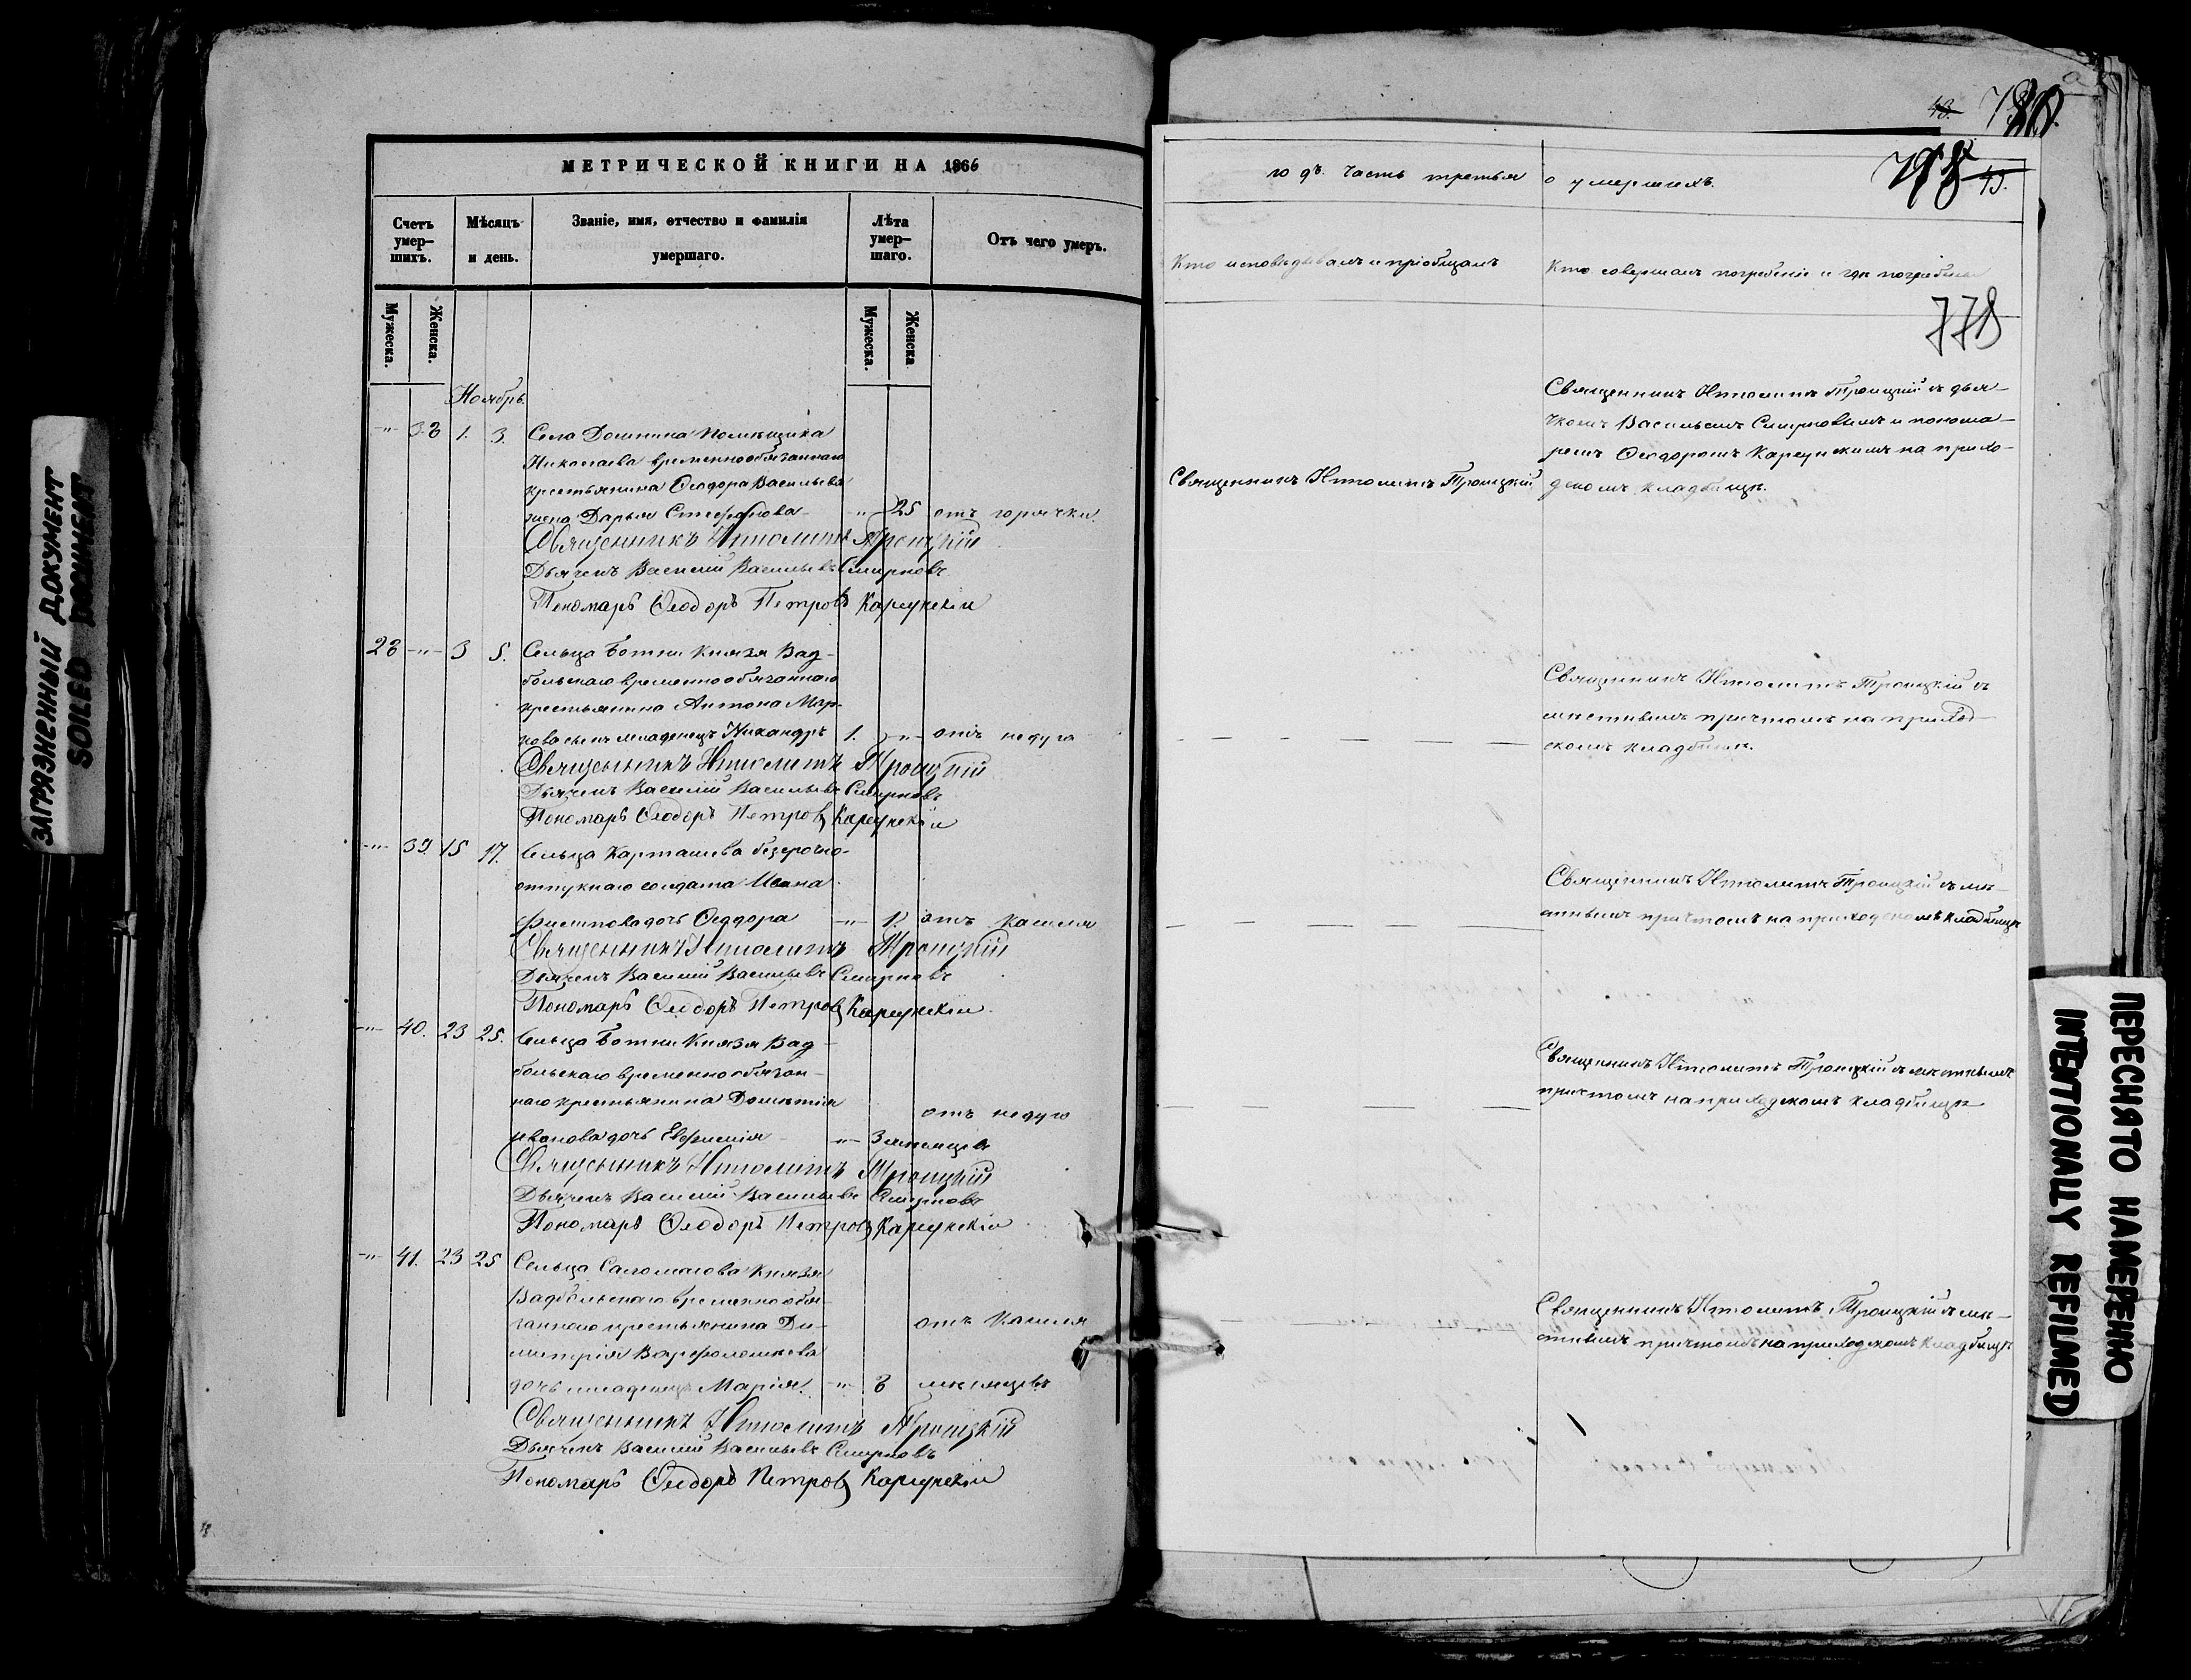 МЕТРИЧЕСКОЙ КНИГИ НА 1866
Счетъ умер-шихъ.
Мѣсяцъ и день.
Званіе, имя, отчество и фамилія умершаго.
Лѣта умер-шаго.
Отъ чего умеръ.
Мужеска.
Женска.
Мужеска.
Женска
Ноябрь.
-"- 38 1. 3. Села Домнина помѣщика
Николаева временнообязаннаго
крестьянина Ѳеодора Васильева
жена Дарья Стефанова - " 25 отъ горячки.
Священникъ Ипполитъ Троицкій
Дьячекъ Василій Васильевъ Смирновъ
Пономарь Ѳеодоръ Петровъ Карцунскій
28 -"- 3 5. Сельца Ботни Князя Вад-
больскаго временнообязаннаго
крестьянина Антона Мар-
кова сынъ младенецъ Никандръ 1. -"- отъ недуга
Священникъ Ипполитъ Троицкій
Дьячекъ Василій Васильевъ Смирновъ
Пономарь Ѳеодоръ Петровъ Карцунскій
-"- 39. 15 17. Сельца Карташева безсрочно-
отпускнаго солдата Ивана
Филиппова дочь Ѳеодора -"- 1. отъ кашля
Священникъ Ипполитъ Троицкій
Дьячекъ Василій Васильевъ Смирновъ
Пономарь Ѳеодоръ Петровъ Карцунскій
-"- 40. 23 25. Сельца Ботни Князя Вад-
больскаго временнообязан-
наго крестьянина Дометія
отъ недуга
Иванова дочь Евфимія -"- 3 мѣсяцевъ
Священникъ Ипполитъ Троицкій
Дьячекъ Василій Васильевъ Смирновъ
Пономарь Ѳеодоръ Петровъ Карцунскій
-"- 41. 23 25 Сельца Саломатова Князя
Вадбольскаго временнообя-
заннаго крестьянина Ди-
отъ кашля
митрія Варфоломеева
дочь младенецъ Марія. -"- 8 мѣсяцевъ
Священникъ Ипполитъ Троицкій
Дьячекъ Василій Васильевъ Смирновъ
Пономарь Ѳеодоръ Петровъ Карцунскій
годъ. Часть третья о умершихъ.
Кто исповѣдывалъ и пріобщалъ
Кто совершалъ погребеніе и гдѣ погребены
778
Священникъ Ипполитъ Троицкій
Священникъ Ипполитъ Троицкій съ дья-
чкомъ Васильемъ Смирновымъ и понома-
ремъ Ѳеодоромъ Карцунскимъ на прихо-
дскомъ кладбищѣ.
Священникъ Ипполитъ Троицкій съ
мѣстнымъ причтомъ на приход-
скомъ кладбищѣ.
Священникъ Ипполитъ Троицкій съ мѣ-
стнымъ причтомъ на приходскомъ кладбищѣ
Священникъ Ипполитъ Троицкій съ мѣстнымъ
причтомъ на приходскомъ кладбищѣ
Священникъ Ипполитъ Троицкій съ мѣ-
стнымъ причтомъ на приходскомъ кладбищѣ
ЗАГРЯЗНЕННЫЙ ДОКУМЕНТ
SOILED DOCUMENT
ПЕРЕСНЯТО НАМЕРЕННО
INTENTIONALLY REFILMED